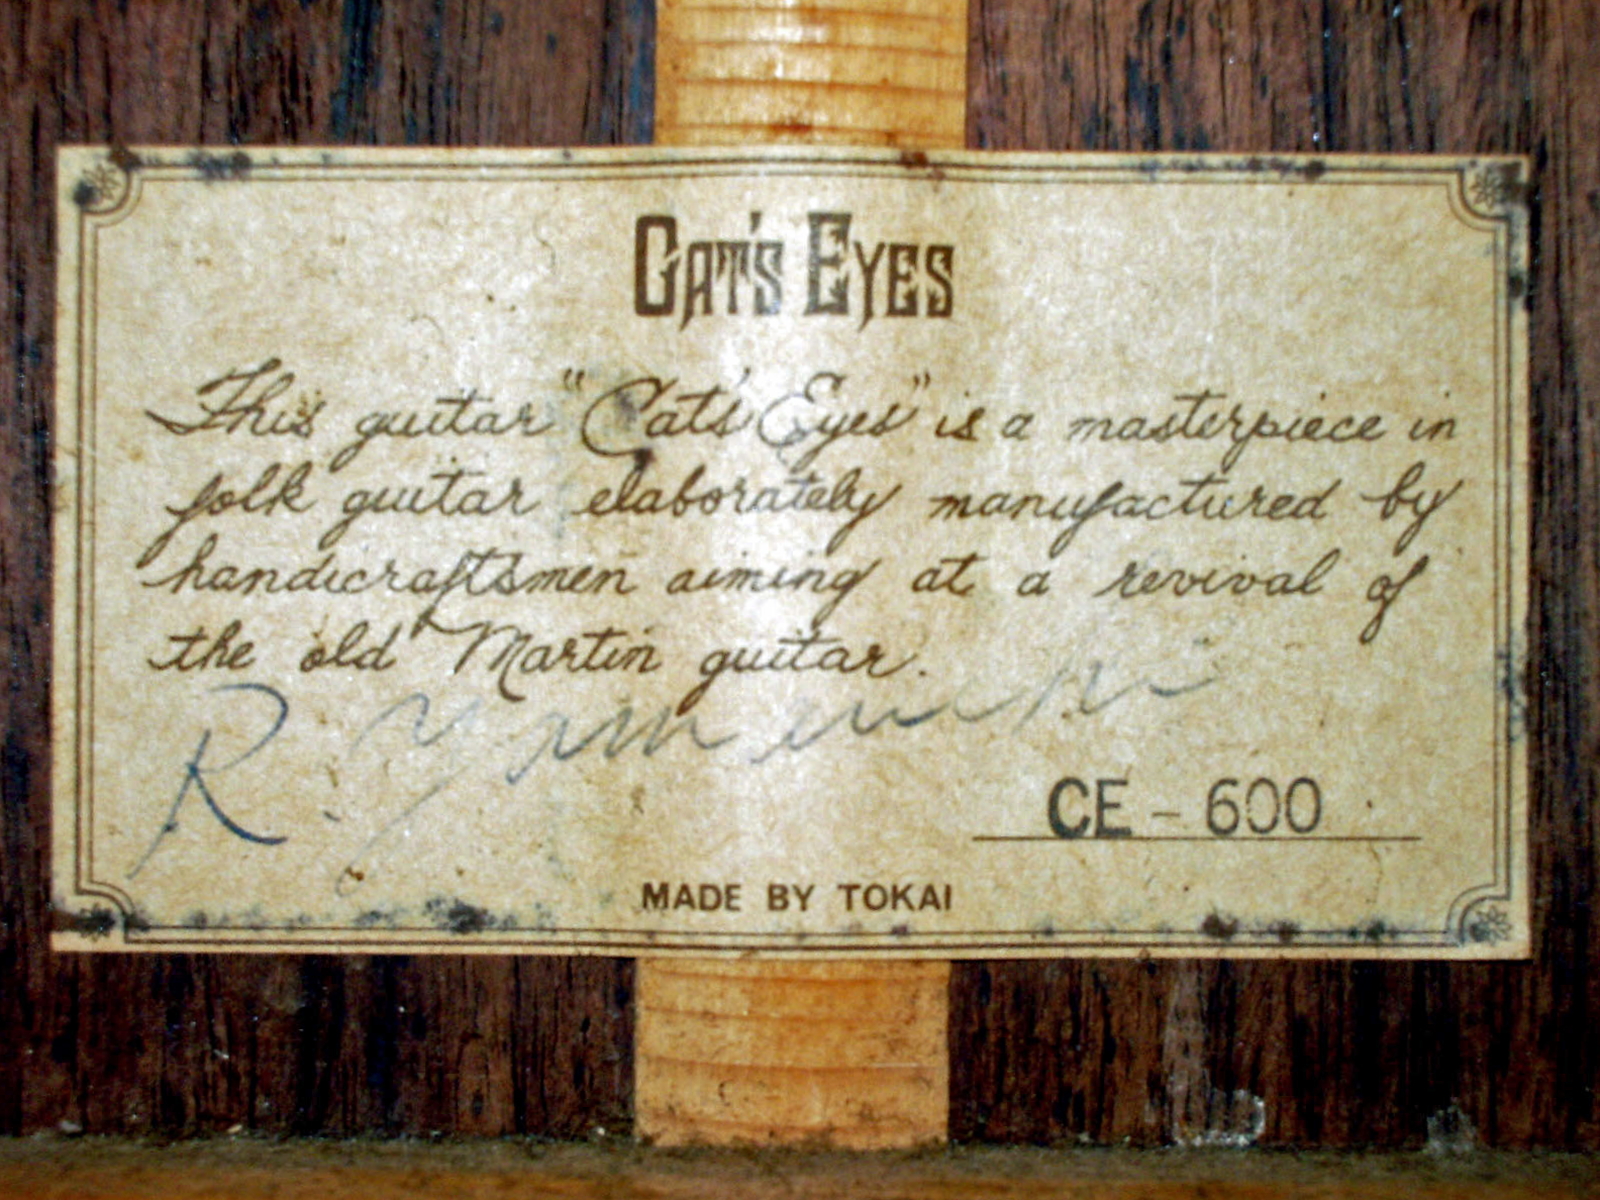 CAT'S EYES
This guitar "Cat's Eyes" is a masterpiece in
folk guitar elaborately manufactured by
handicraftsmen aiming at a revival of
the old Martin guitar.
R.
CE - 600
MADE BY TOKAI